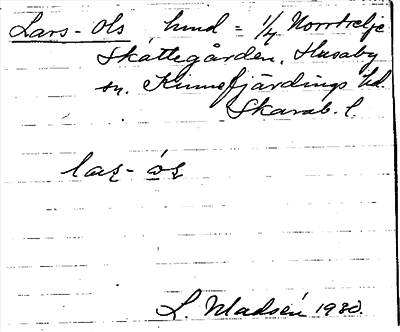 Lars-Ols, hmd = 1/4 Norrtrelje
Skattegården, Husaby
sn. Kinnefjärdings hd.
Skarab. l.
laʂ-ós
L. Madsén 1930.